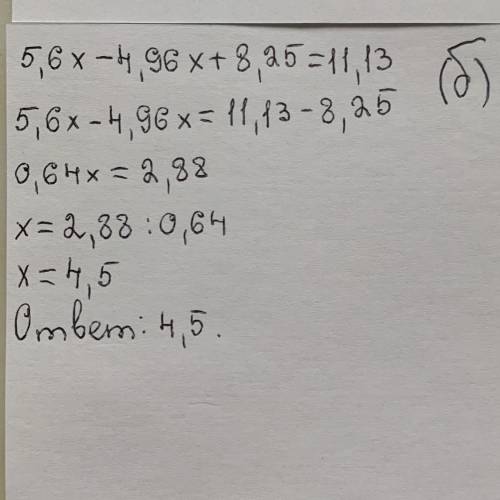 5,6x-4,96x+8,25=11,13 (б)
5,6x-4,96x=11,13-8,25
0,64x=2,88
x=2,88:0,64
x=4,5
Ответ: 4,5.